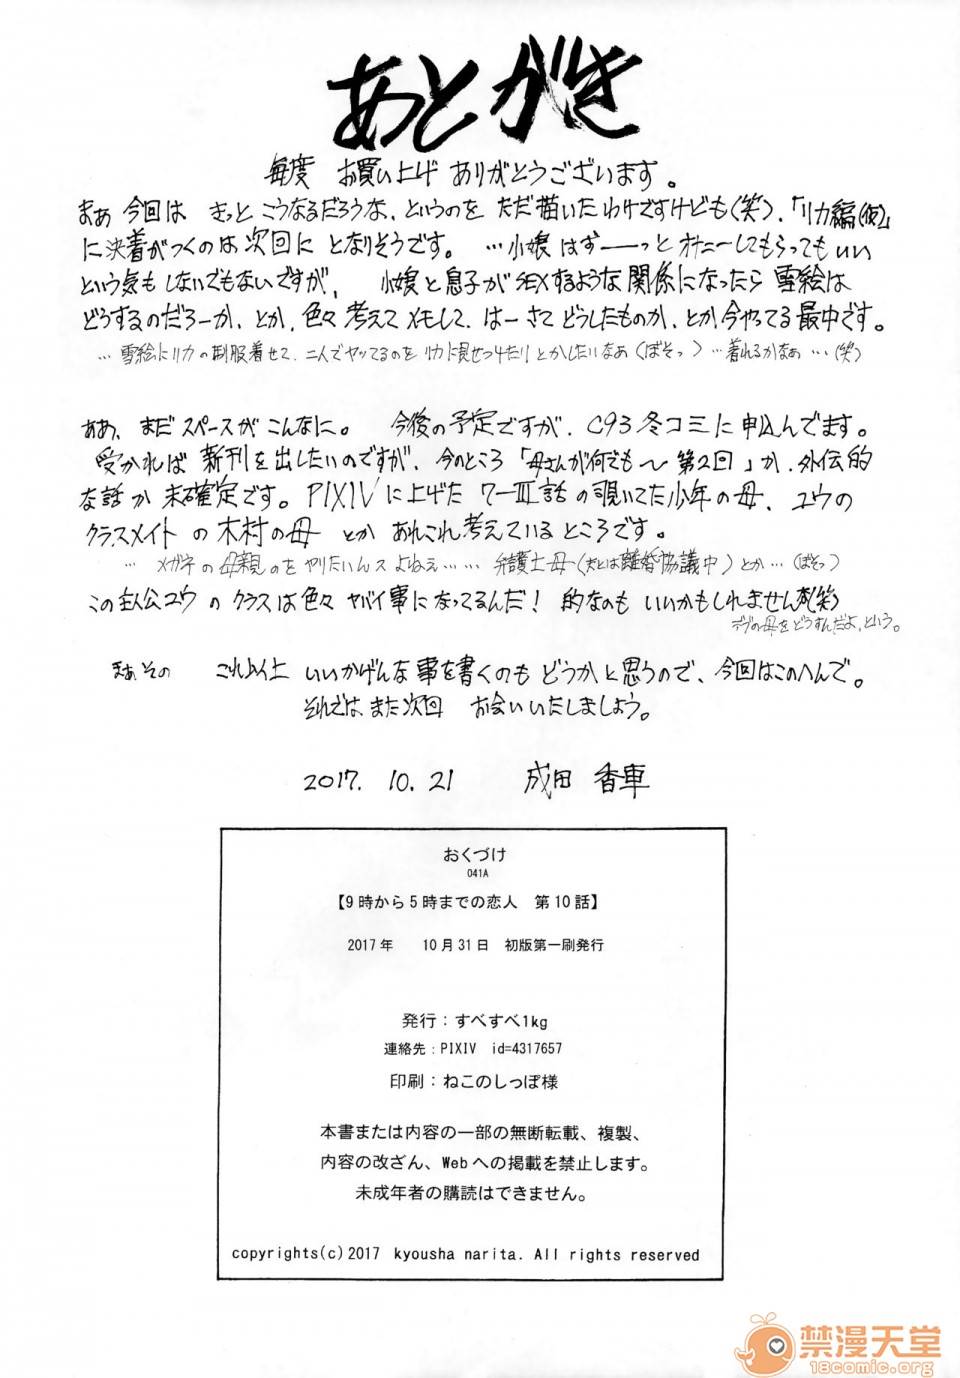 あとがき
毎度 お買い上げ ありがとうございます。
まぁ 今回は きっと こうなるだろうな、というのを ただ描いたわけですけども(笑)、「リカ編(仮)」
に決着がつくのは次回に となりそうです。 …小娘はずーーっとオナニーしてもらってもいい
という気もしないでもないですが、 小娘と息子がSEXするような関係になったら雪絵は
どうするのだろーか、とか、色々考えてメモして、はーさてどうしたものか、とか今やってる最中です。
…雪絵にリカの制服着せて、二人でヤッてるのをリカに見せつけたりとかしたいなぁ(ぼそっ) …着れるかなぁ…(笑)
ああ、まだスペースがこんなに。 今後の予定ですが、C93冬コミに申込んでます。
受かれば新刊を出したいのですが、今のところ「母さんが何でも〜第2回」か、外伝的
な話か未確定です。PIXIVに上げた 7-III話の覗いてた少年の母、ユウの
クラスメイトの木村の母 とか あれこれ考えているところです。
… メガネの母親のをやりたいんスよねぇ…… 弁護士母(夫とは離婚協議中)とか…(ぼそっ)
この主人公ユウのクラスは色々ヤバイ事になってるんだ! 的なのも いいかもしれませんが(笑)
デブの母をどうすんだよ、という。
まぁ、その これ以上 いいかげんな事を書くのもどうかと思うので、今回はこのへんで。
それでは、また次回 お会いいたしましょう。
2017. 10. 21 成田 香車
おくづけ
041A
【9時から5時までの恋人 第10話】
2017年 10月31日 初版第一刷発行
発行：すべすべ1kg
連絡先：PIXIV id=4317657
印刷：ねこのしっぽ様
本書または内容の一部の無断転載、複製、
内容の改ざん、Webへの掲載を禁止します。
未成年者の購読はできません。
copyrights(c)2017 kyousha narita. All rights reserved
禁漫天堂
18comic.org